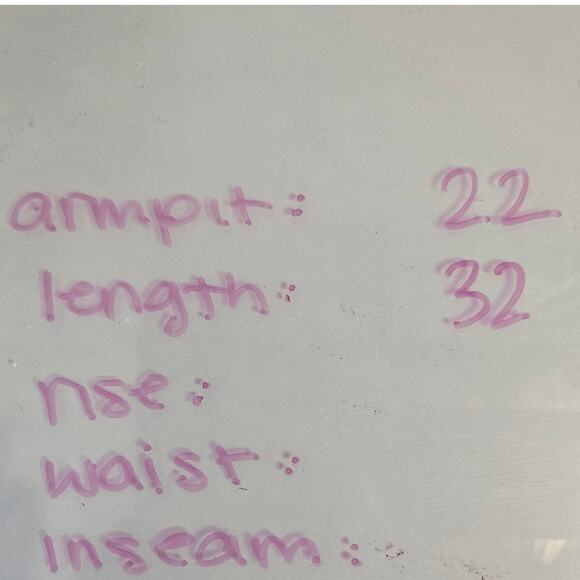 armpit: 22
length: 32
rise:
waist:
inseam: